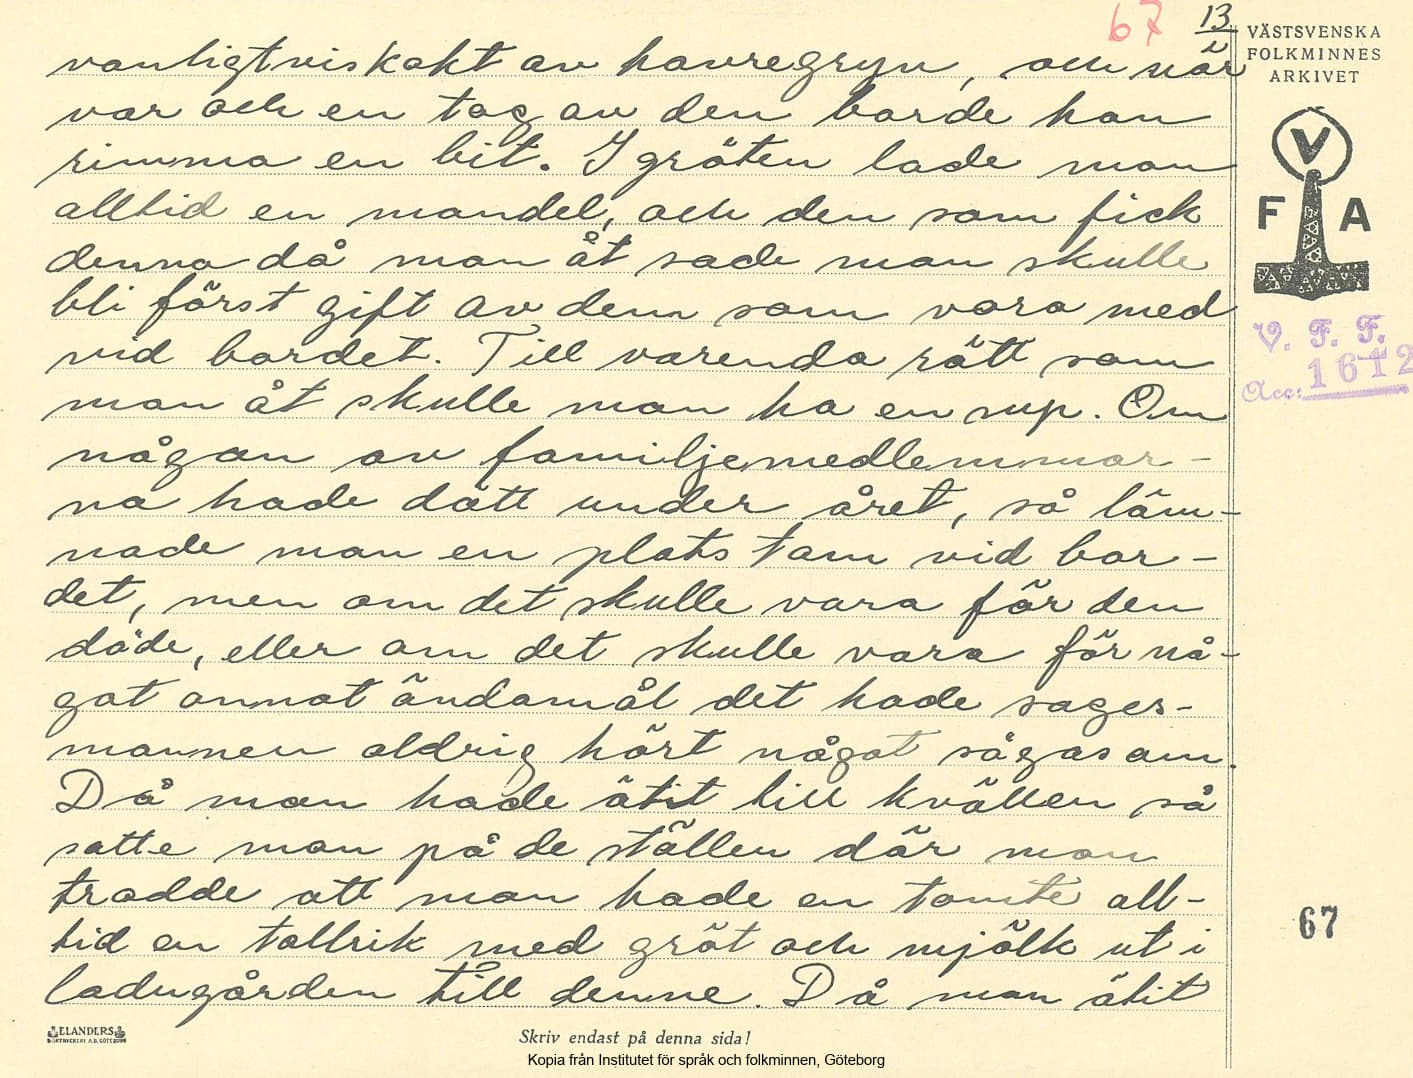 67 13
VÄSTSVENSKA
FOLKMINNES
ARKIVET
V
F A
V. F. F.
Acc: 1612
vanligtvis kokt av havregryn, och när
var och en tog av den borde han
rimma en bit. I gröten lade man
alltid en mandel, och den som fick
denna då man åt sade man skulle
bli först gift av dem som voro med
vid bordet. Till varenda rätt som
man åt skulle man ha en sup. Om
någon av familjemedlemmar-
na hade dött under året, så läm-
nade man en plats tom vid bor-
det, men om det skulle vara för den
döde, eller om det skulle vara för nå-
got annat ändamål det hade sages-
mannen aldrig hört något sägas om.
Då man hade ätit till kvällen så
satte man på de ställen där man
trodde att man hade en tomte all-
tid en tallrik med gröt och mjölk ut i
ladugården till denne. Då man ätit
67
ELANDERS
BOKTRYCKERI A.B. GÖTEBORG
Skriv endast på denna sida!
Kopia från Institutet för språk och folkminnen, Göteborg